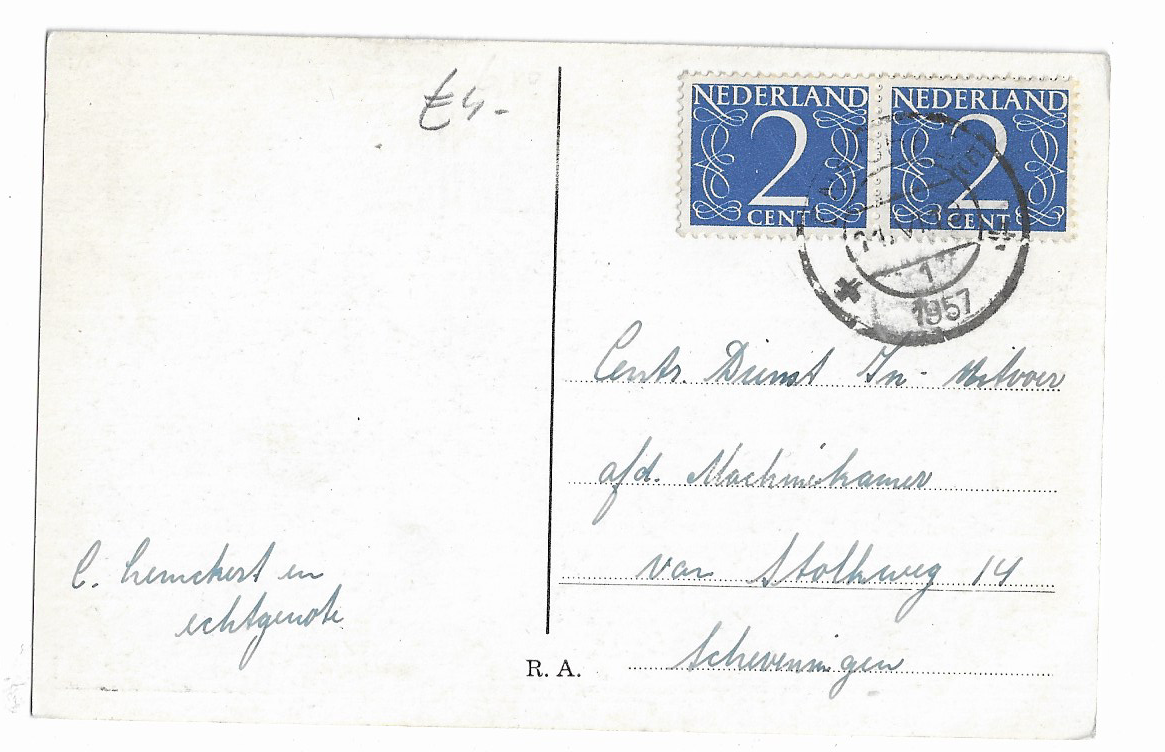 €4.-
NEDERLAND NEDERLAND
2 2
CENT CENT
1
1957
Centr. Dienst In- Uitvoer
afd. Machinekamer
van Stolkweg 14
Scheveningen
C. Lemckert en
echtgenote
R. A.